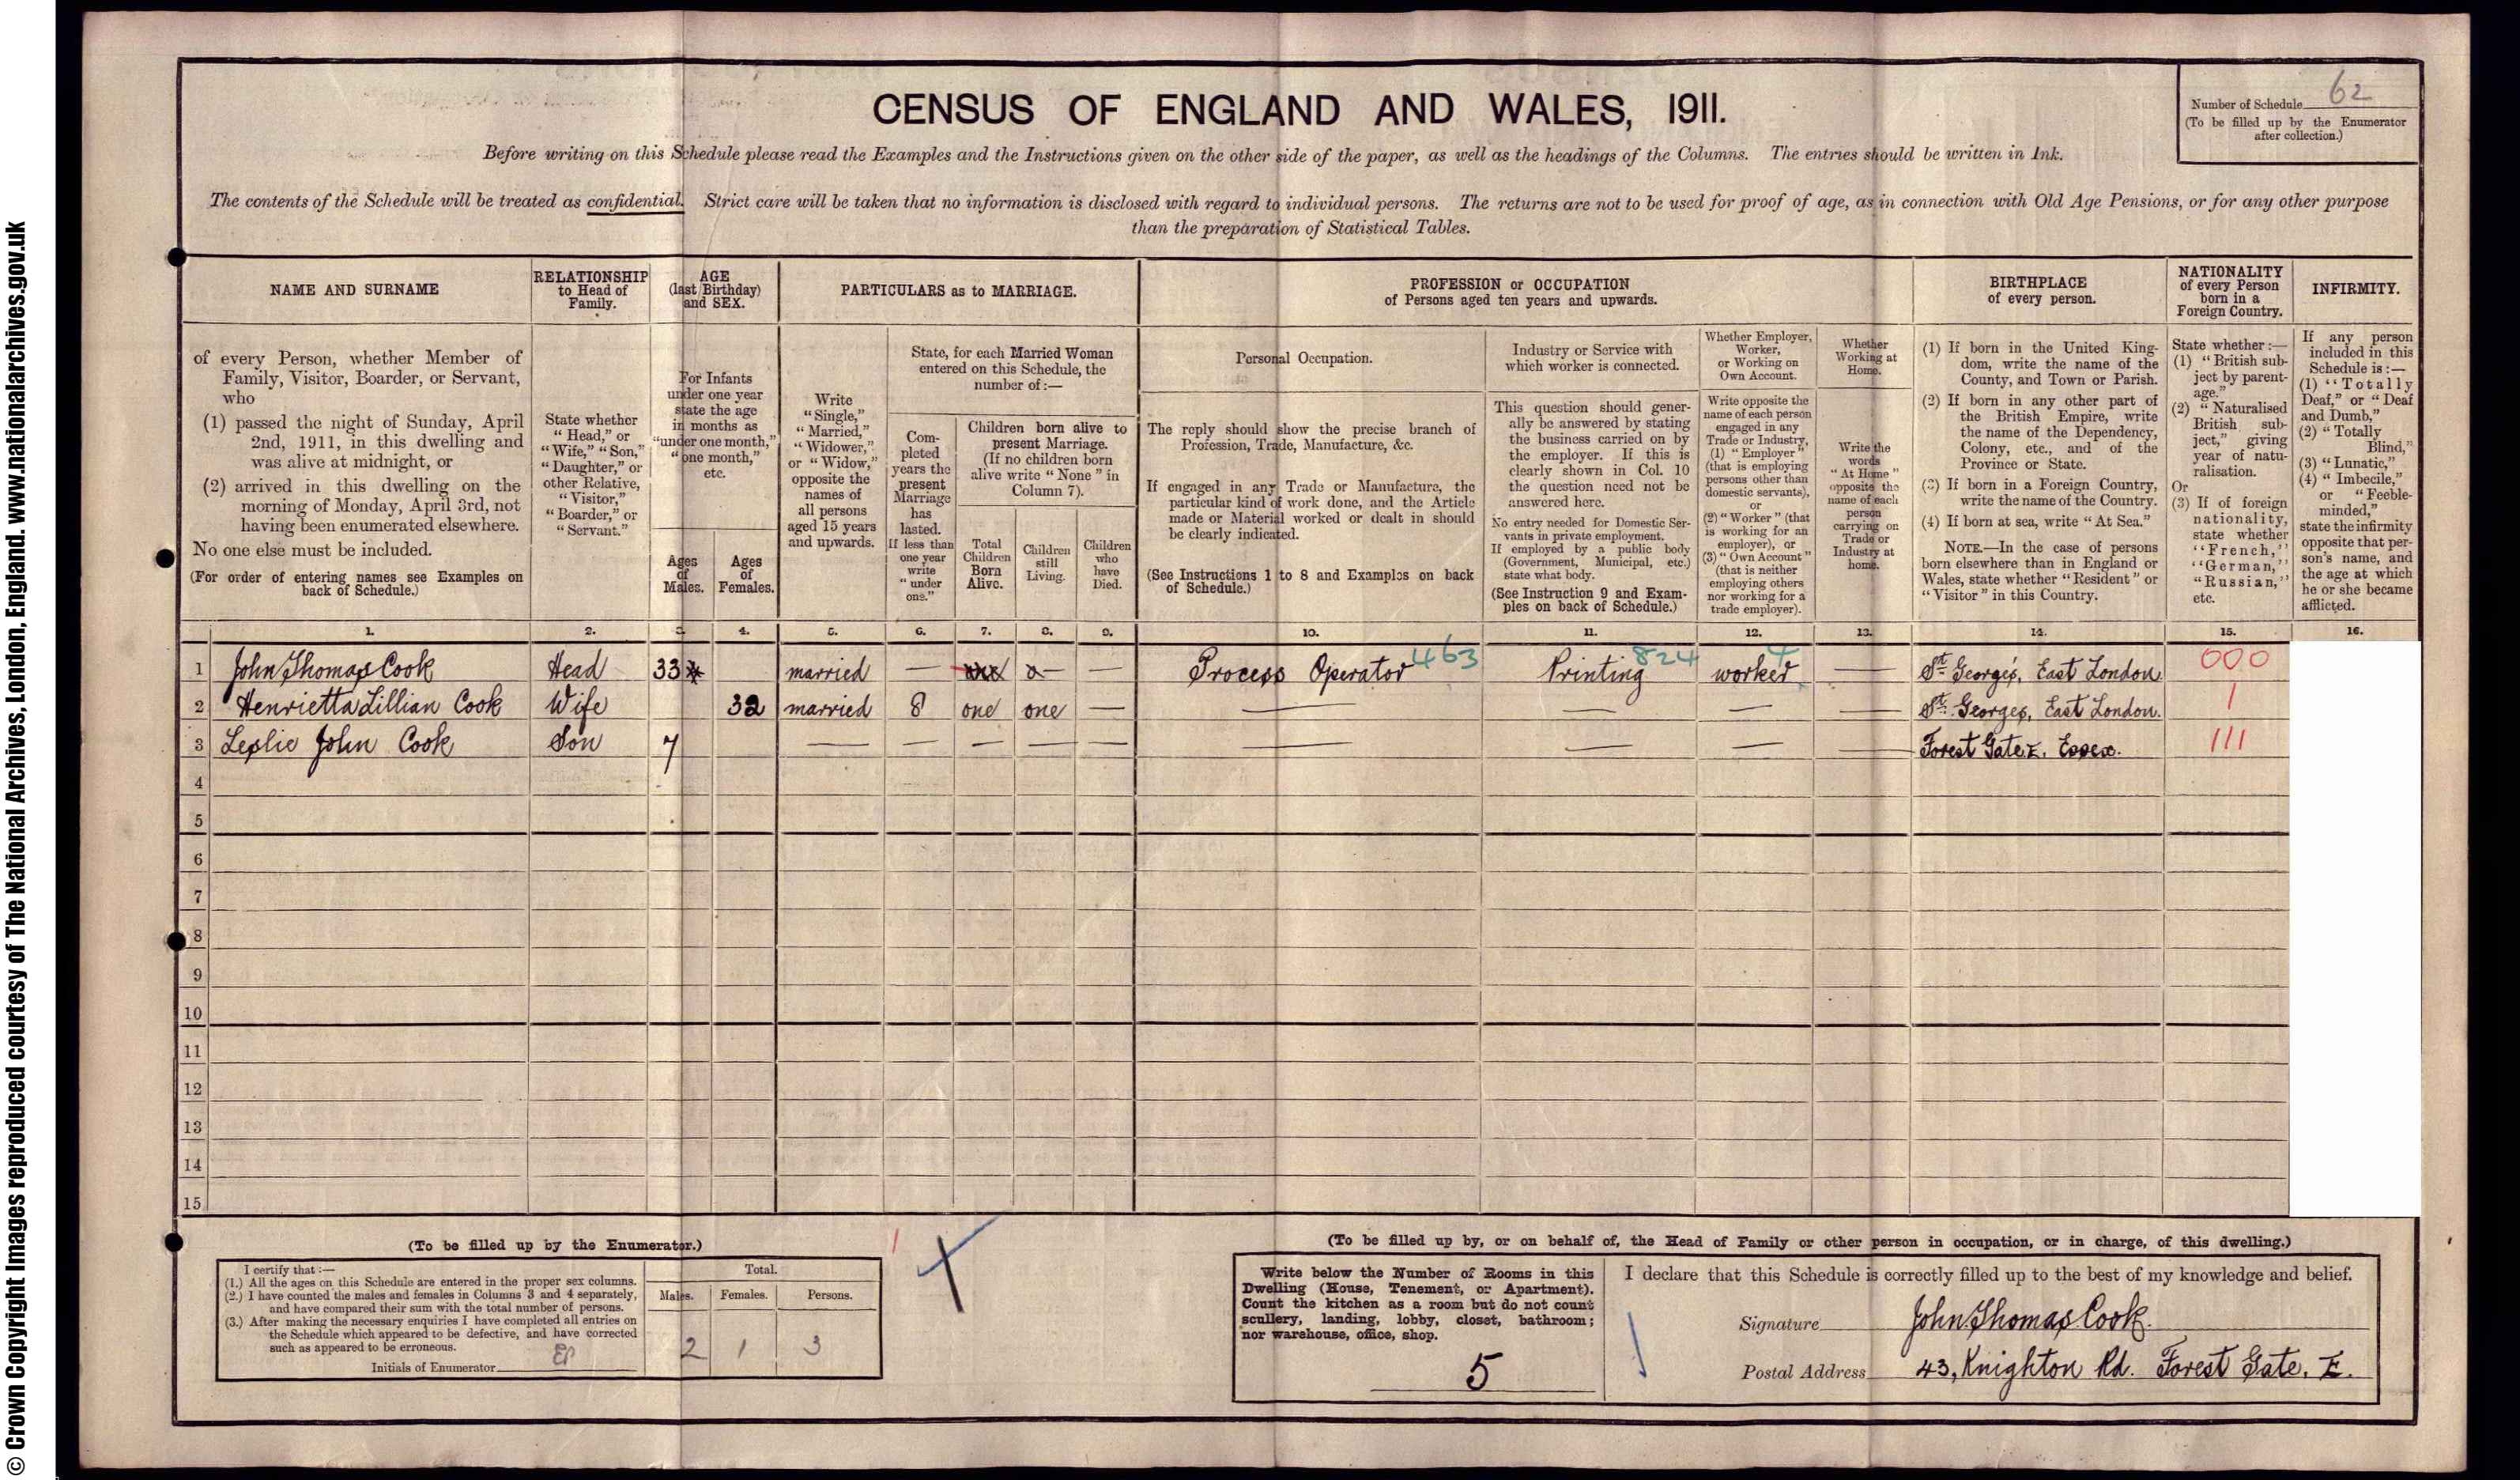 © Crown Copyright Images reproduced courtesy of The National Archives, London, England. www.nationalarchives.gov.uk
CENSUS OF ENGLAND AND WALES, 1911.
Number of Schedule 62
(To be filled up by the Enumerator
after collection.)
Before writing on this Schedule please read the Examples and the Instructions given on the other side of the paper, as well as the headings of the Columns. The entries should be written in Ink.
The contents of the Schedule will be treated as confidential. Strict care will be taken that no information is disclosed with regard to individual persons. The returns are not to be used for proof of age, as in connection with Old Age Pensions, or for any other purpose
than the preparation of Statistical Tables.
NAME AND SURNAME
of every Person, whether Member of
Family, Visitor, Boarder, or Servant,
who
(1) passed the night of Sunday, April
2nd, 1911, in this dwelling and
was alive at midnight, or
(2) arrived in this dwelling on the
morning of Monday, April 3rd, not
having been enumerated elsewhere.
No one else must be included.
(For order of entering names see Examples on
back of Schedule.)
RELATIONSHIP
to Head of
Family.
State whether
"Head," or
"Wife," "Son,"
"Daughter," or
other Relative,
"Visitor,"
"Boarder," or
"Servant."
AGE
(last Birthday)
and SEX.
For Infants
under one year
state the age
in months as
"under one month,"
"one month,"
etc.
Ages
of
Males.
Ages
of
Females.
PARTICULARS as to MARRIAGE.
Write
"Single,"
"Married,"
"Widower,"
or "Widow,"
opposite the
names of
all persons
aged 15 years
and upwards.
State, for each Married Woman
entered on this Schedule, the
number of:—
Com-
pleted
years the
present
Marriage
has
lasted.
If less than
one year
write
"under
one."
Children born alive to
present Marriage.
(If no children born
alive write "None" in
Column 7).
Total
Children
Born
Alive.
Children
still
Living.
Children
who
have
Died.
PROFESSION or OCCUPATION
of Persons aged ten years and upwards.
Personal Occupation.
The reply should show the precise branch of
Profession, Trade, Manufacture, &c.
If engaged in any Trade or Manufacture, the
particular kind of work done, and the Article
made or Material worked or dealt in should
be clearly indicated.
(See Instructions 1 to 8 and Examples on back
of Schedule.)
Industry or Service with
which worker is connected.
This question should gener-
ally be answered by stating
the business carried on by
the employer. If this is
clearly shown in Col. 10
the question need not be
answered here.
No entry needed for Domestic Ser-
vants in private employment.
If employed by a public body
(Government, Municipal, etc.)
state what body.
(See Instruction 9 and Exam-
ples on back of Schedule.)
Whether Employer,
Worker,
or Working on
Own Account.
Write opposite the
name of each person
engaged in any
Trade or Industry,
(1) "Employer"
(that is employing
persons other than
domestic servants),
or
(2) "Worker" (that
is working for an
employer), or
(3) "Own Account"
(that is neither
employing others
nor working for a
trade employer).
Whether
Working at
Home.
Write the
words
"At Home"
opposite the
name of each
person
carrying on
Trade or
Industry at
home.
BIRTHPLACE
of every person.
(1) If born in the United King-
dom, write the name of the
County, and Town or Parish.
(2) If born in any other part of
the British Empire, write
the name of the Dependency,
Colony, etc., and of the
Province or State.
(3) If born in a Foreign Country,
write the name of the Country.
(4) If born at sea, write "At Sea."
NOTE.—In the case of persons
born elsewhere than in England or
Wales, state whether "Resident" or
"Visitor" in this Country.
NATIONALITY
of every Person
born in a
Foreign Country.
State whether:—
(1) "British sub-
ject by parent-
age."
(2) "Naturalised
British sub-
ject," giving
year of natu-
ralisation.
Or
(3) If of foreign
nationality,
state whether
"French,"
"German,"
"Russian,"
etc.
INFIRMITY.
If any person
included in this
Schedule is:—
(1) "Totally
Deaf," or "Deaf
and Dumb,"
(2) "Totally
Blind,"
(3) "Lunatic,"
(4) "Imbecile,"
or "Feeble-
minded,"
state the infirmity
opposite that per-
son's name, and
the age at which
he or she became
afflicted.
1. 2. 3. 4. 5. 6. 7. 8. 9. 10. 11. 12. 13. 14. 15. 16.
1 John Thomas Cook Head 33 married — — Process Operator 463 Printing 824 worker 4 — St. George's, East London. 000
2 Henrietta Lillian Cook Wife 32 married 8 one one — — — — — St. Georges, East London. 1
3 Leslie John Cook Son 7 — — — — — — — — — Forest Gate. E. Essex. 111
4
5
6
7
8
9
10
11
12
13
14
15
(To be filled up by the Enumerator.)
I certify that:—
(1.) All the ages on this Schedule are entered in the proper sex columns.
(2.) I have counted the males and females in Columns 3 and 4 separately,
and have compared their sum with the total number of persons.
(3.) After making the necessary enquiries I have completed all entries on
the Schedule which appeared to be defective, and have corrected
such as appeared to be erroneous.
Initials of Enumerator EP
Total.
Males. Females. Persons.
2 1 3
(To be filled up by, or on behalf of, the Head of Family or other person in occupation, or in charge, of this dwelling.)
Write below the Number of Rooms in this
Dwelling (House, Tenement, or Apartment).
Count the kitchen as a room but do not count
scullery, landing, lobby, closet, bathroom;
nor warehouse, office, shop.
5
I declare that this Schedule is correctly filled up to the best of my knowledge and belief.
Signature John Thomas Cook.
Postal Address 43, Knighton Rd. Forest Gate. E.